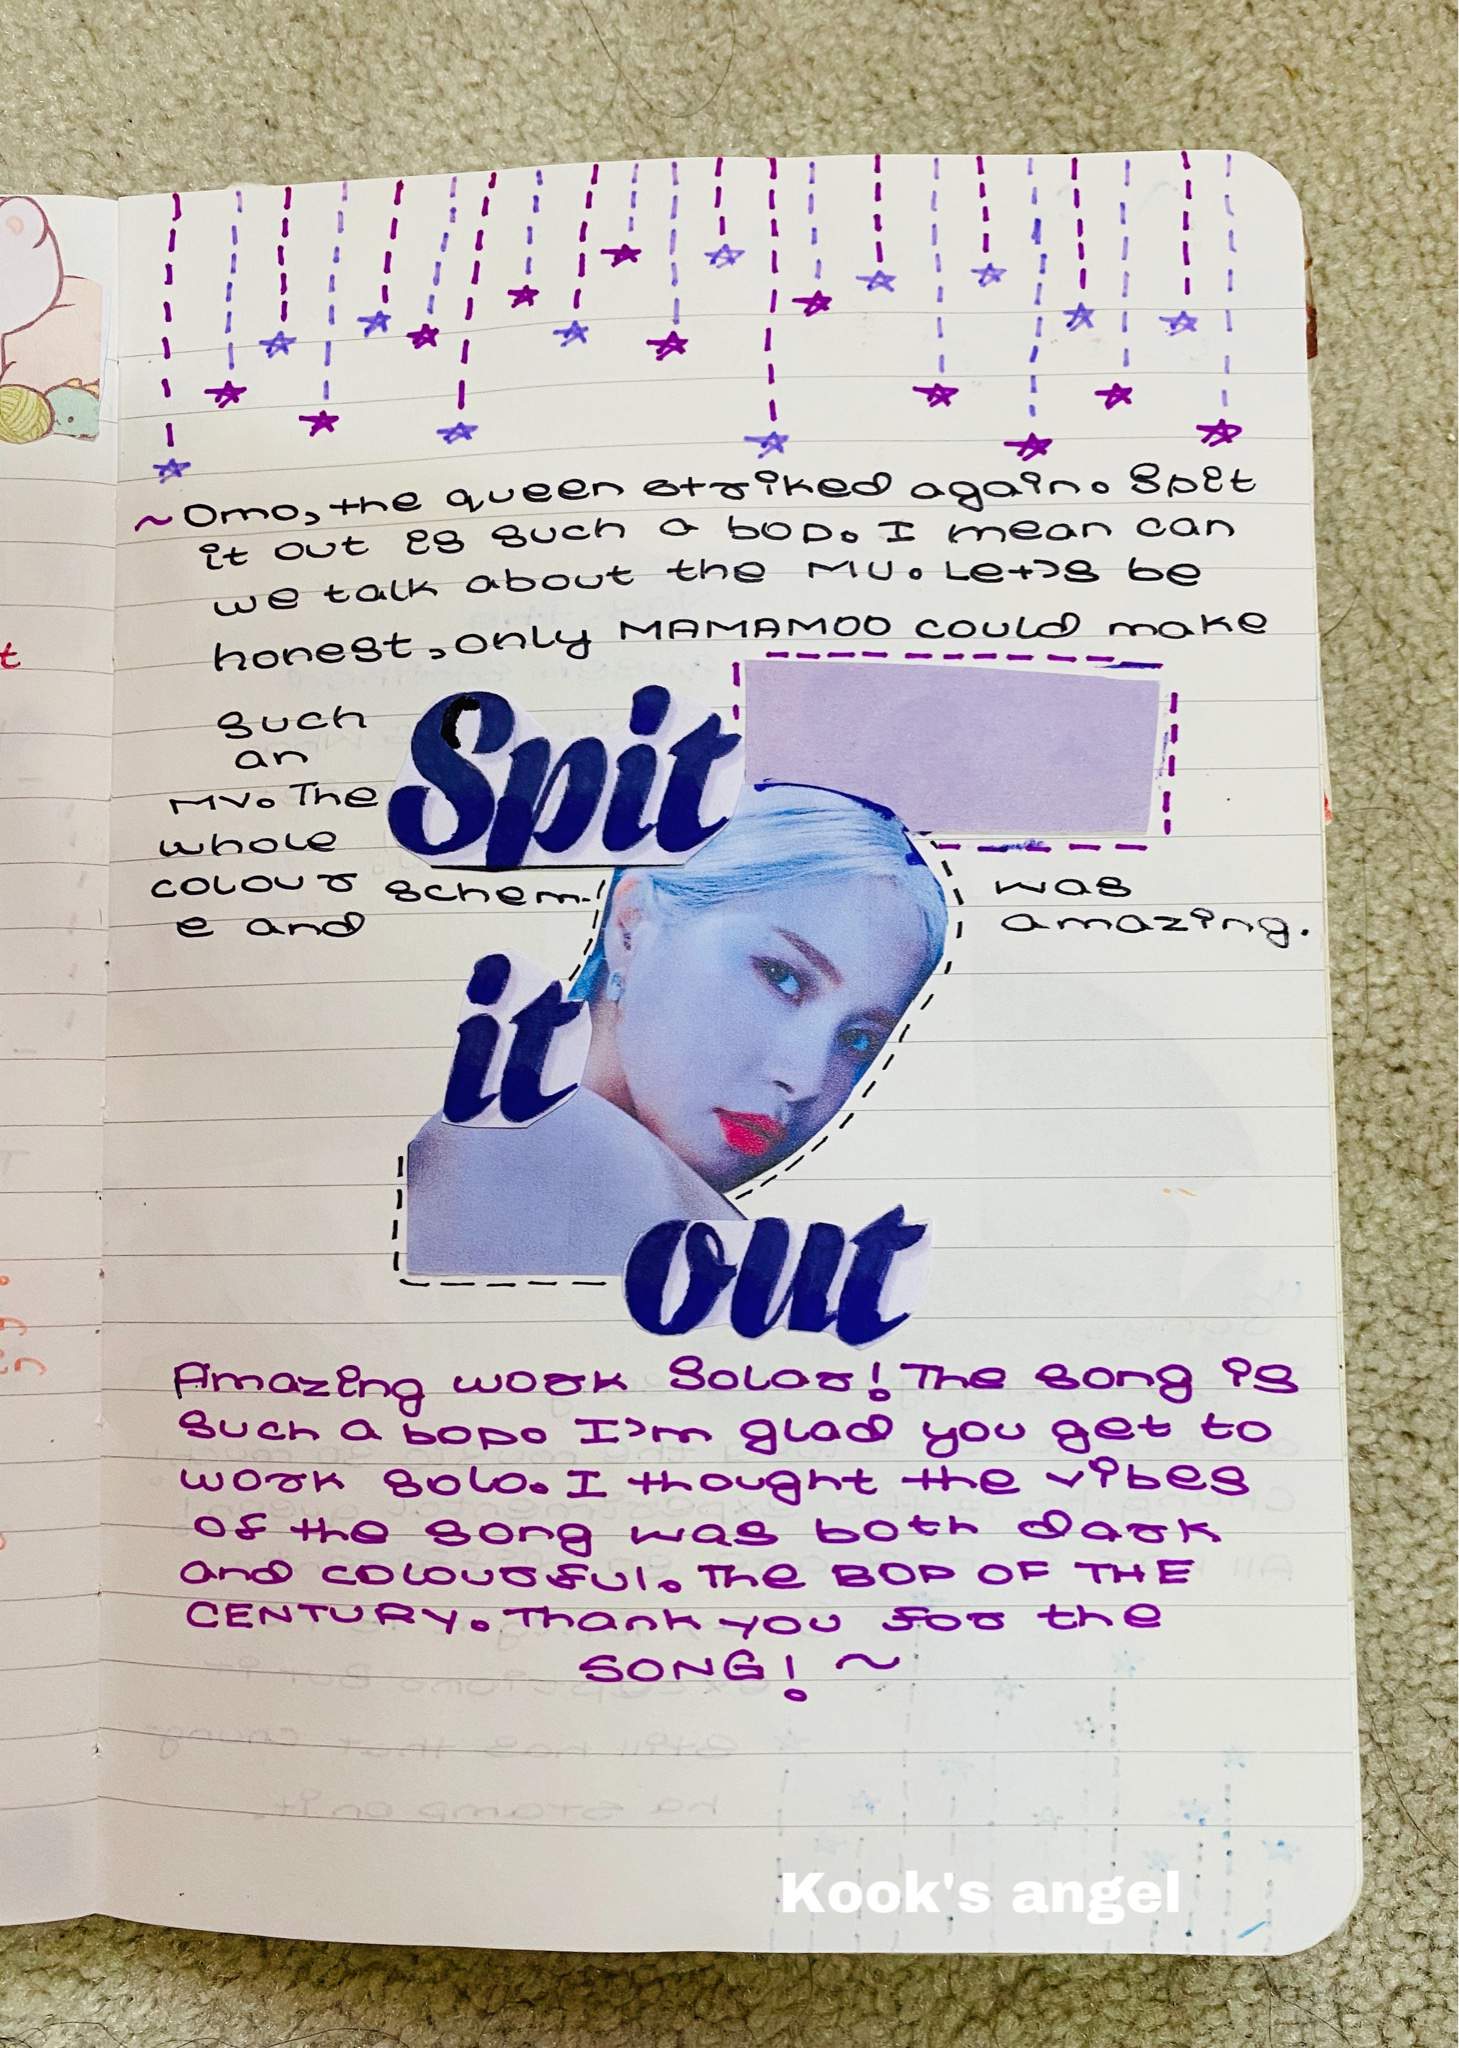 ~Omo, the queen striked again. Spit
it out is such a bop. I mean can
we talk about the MV. Let's be
honest, only MAMAMOO could make
such
an
MV. The
whole
colour schem-
e and
was
amazing.
Spit
it
out
Amazing work Solar! The song is
such a bop. I'm glad you get to
work solo. I thought the vibes
of the song was both dark
and colourful. The BOP OF THE
CENTURY. Thank you for the
SONG! ~
Kook's angel